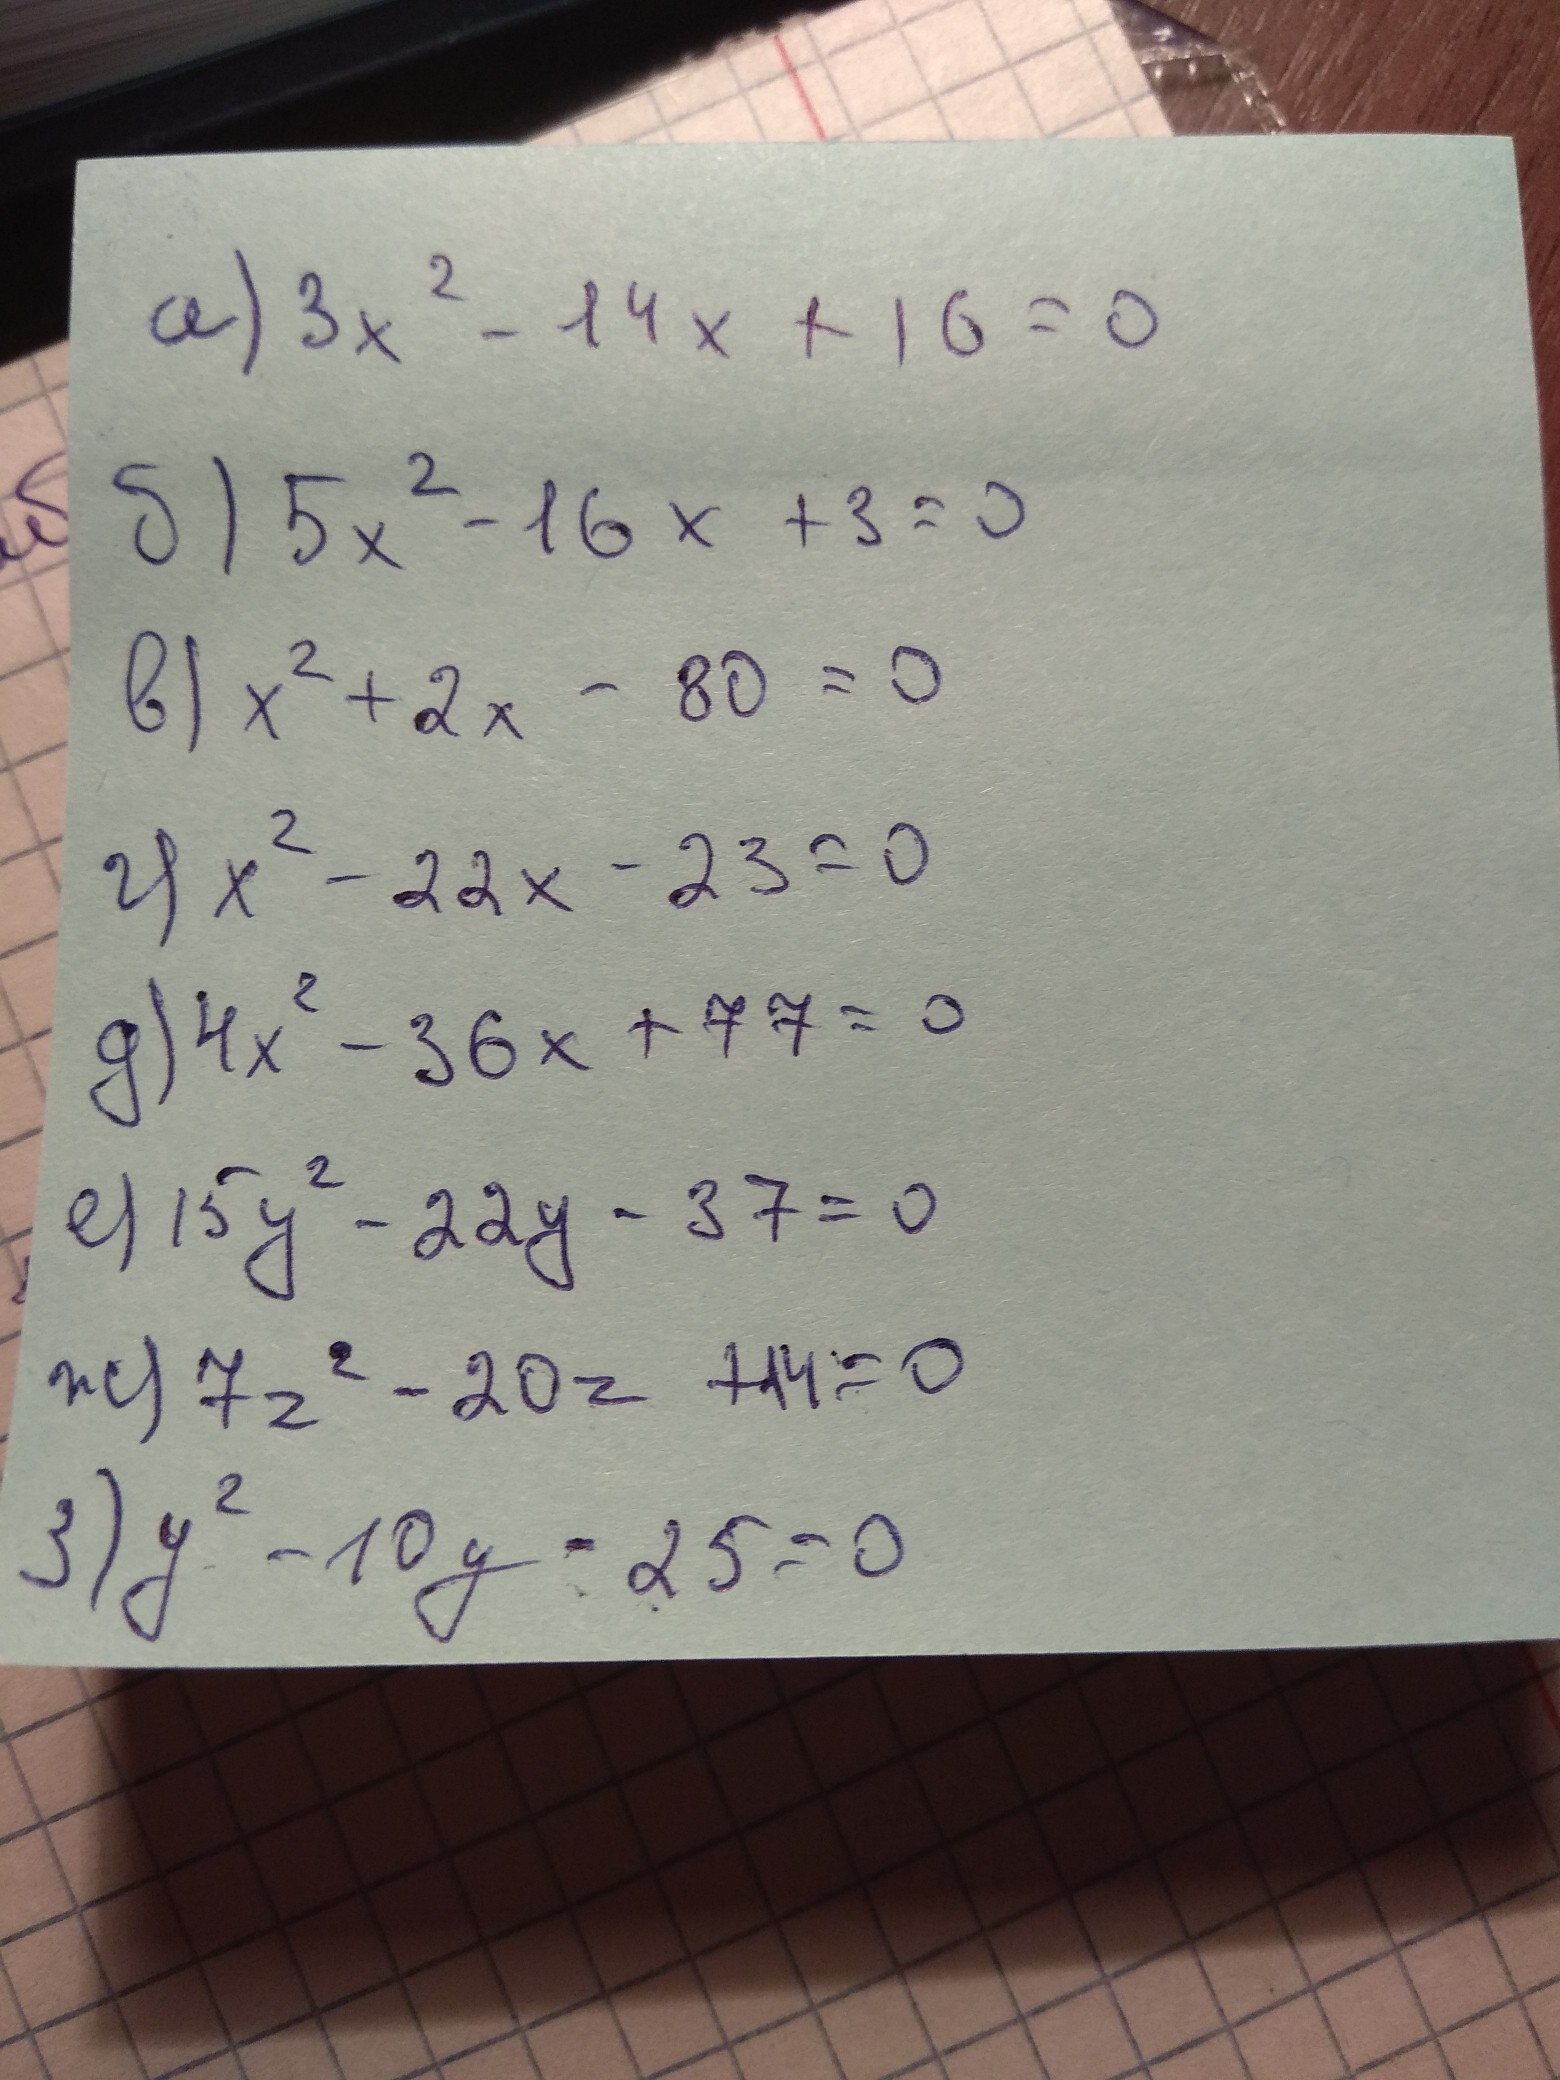 а) 3x² - 14x + 16 = 0
б) 5x² - 16x + 3 = 0
в) x² + 2x - 80 = 0
г) x² - 22x - 23 = 0
д) 4x² - 36x + 77 = 0
е) 15y² - 22y - 37 = 0
ж) 7z² - 20z + 14 = 0
з) y² - 10y - 25 = 0